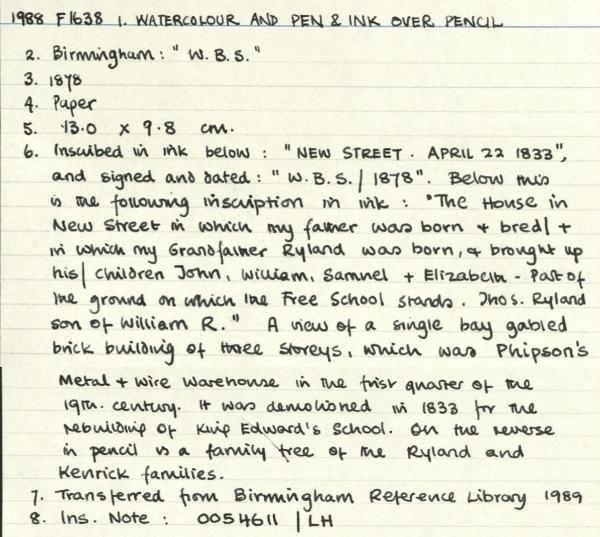 1988 F1638 1. WATERCOLOUR AND PEN & INK OVER PENCIL
2. Birmingham : "W.B.S."
3. 1878
4. Paper
5. 13.0 x 9.8 cm.
6. Inscribed in ink below : "NEW STREET. APRIL 22 1833",
and signed and dated : "W.B.S. | 1878". Below this
is the following inscription in ink : "The House in
New Street in which my father was born + bred | +
in which my Grandfather Ryland was born, & brought up
his | children John, William, Samuel + Elizabeth - Part of
the ground on which the Free School stands. Thos. Ryland
son of William R." A view of a single bay gabled
brick building of three storeys, which was Phipson's
Metal + Wire Warehouse in the frist quarter of the
19th. century. It was demolished in 1833 for the
rebuilding of King Edward's School. On the reverse
in pencil is a family tree of the Ryland and
Kenrick families.
7. Transferred from Birmingham Reference Library 1989
8. Ins. Note : 0054611 | LH